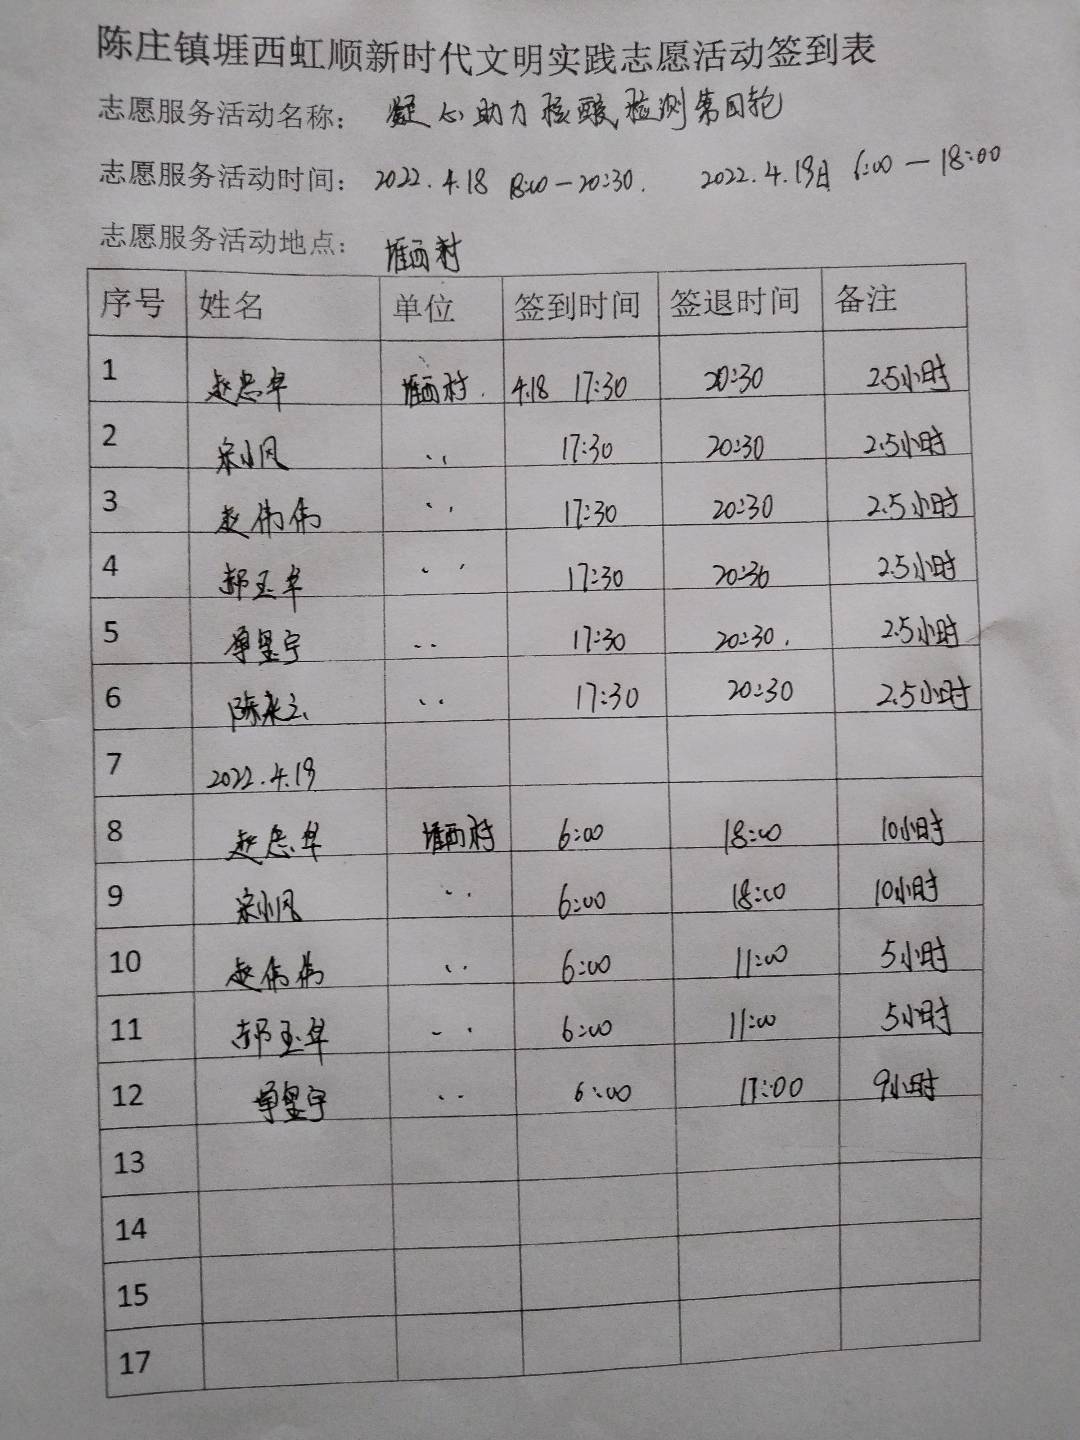 陈庄镇堐西虹顺新时代文明实践志愿活动签到表
志愿服务活动名称： 凝心助力核酸检测第四轮
志愿服务活动时间： 2022.4.18 18:00—20:30. 2022.4.19日 6:00—18:00
志愿服务活动地点： 堐西村
序号 姓名 单位 签到时间 签退时间 备注
1 赵忠卓 堐西村. 4.18 17:30 20:30 2.5小时
2 宋小风 17:30 20:30 2.5小时
3 赵伟伟 17:30 20:30 2.5小时
4 郝玉卓 17:30 20:30 2.5小时
5 17:30 20:30. 2.5小时
6 陈来云 17:30 20:30 2.5小时
7 2022.4.19
8 赵忠卓 堐西村 6:00 18:00 10小时
9 宋小风 6:00 18:00 10小时
10 赵伟伟 6:00 11:00 5小时
11 郝玉卓 6:00 11:00 5小时
12 6:00 17:00 9小时
13
14
15
17